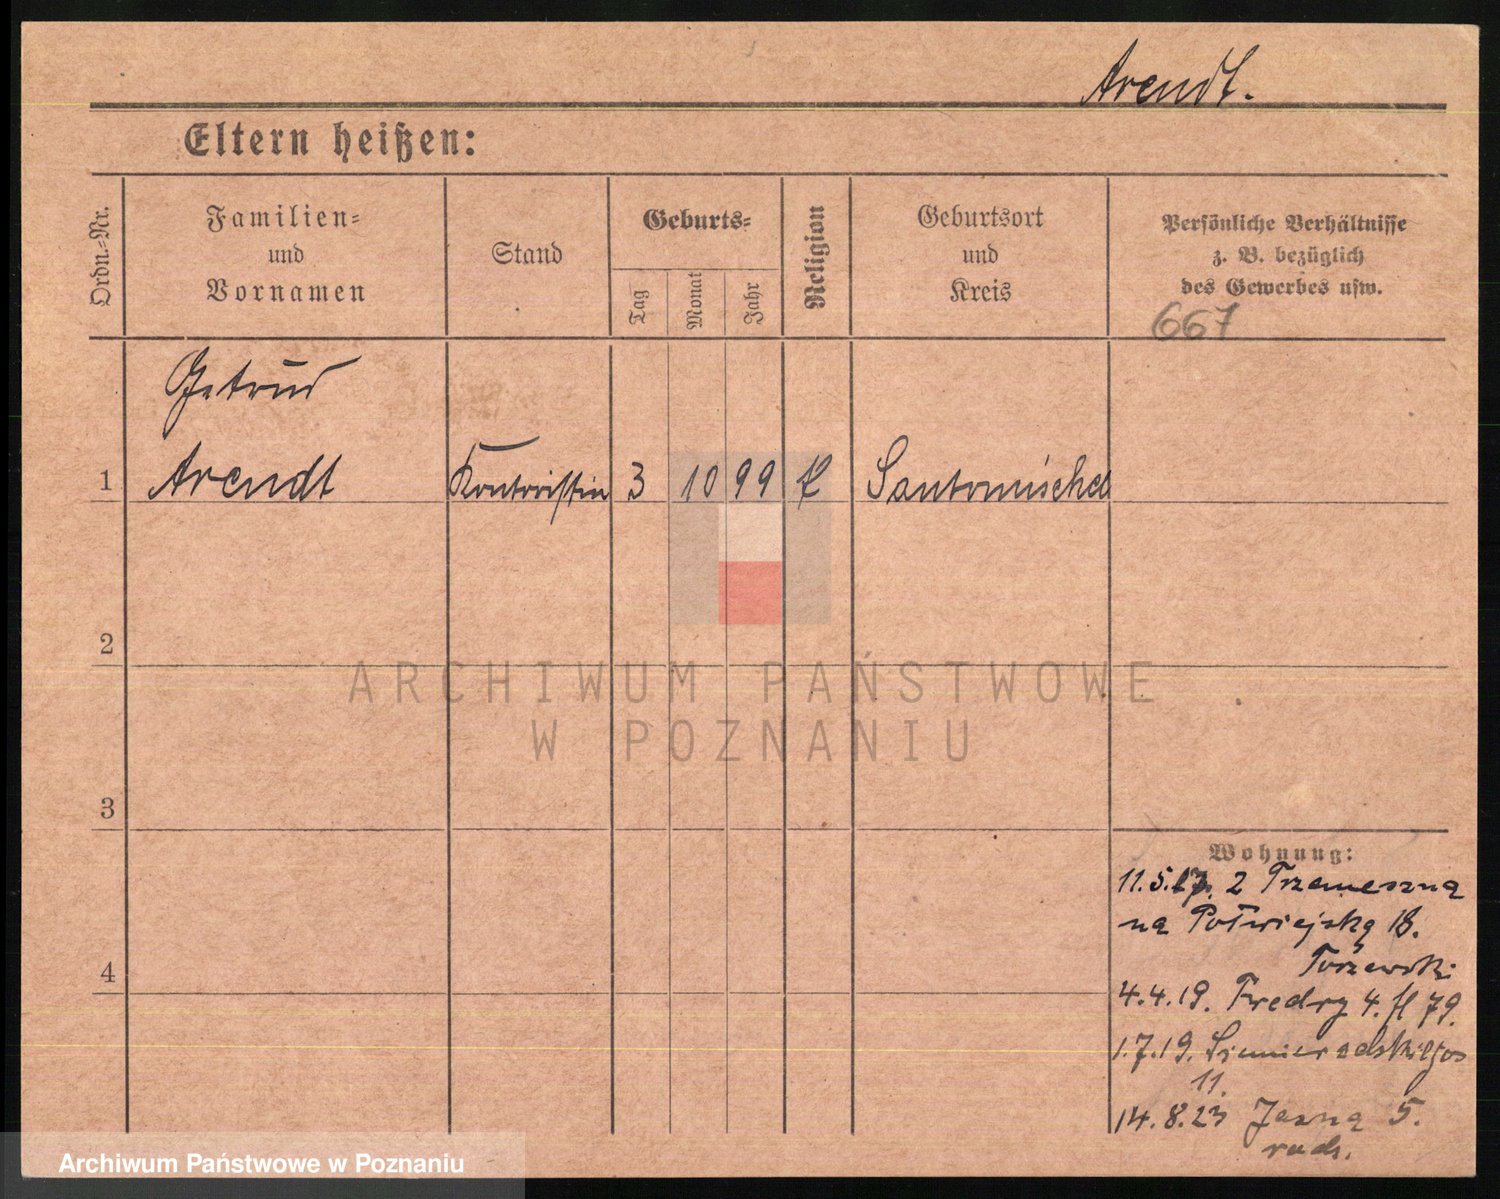 Arendt.
Eltern heißen:
Ordn.-Nr.
Familien-
und
Vornamen
Stand
Geburts-
Tag
Monat
Jahr
Religion
Geburtsort
und
Kreis
Persönliche Verhältnisse
z. B. bezüglich
des Gewerbes usw.
667
Getrud
1 Arendt Kontoristin 3 10 99 Santomischel
2
ARCHIWUM PAŃSTWOWE
W POZNANIU
3
Wohnung:
11.5.17. 2 Trzemeszna
na Półwiejską 18.
4
4.4.19. Fredry 4. 79.
1.7.19. Siemieradskiego
11.
14.8.23 Jasna 5.
Archiwum Państwowe w Poznaniu